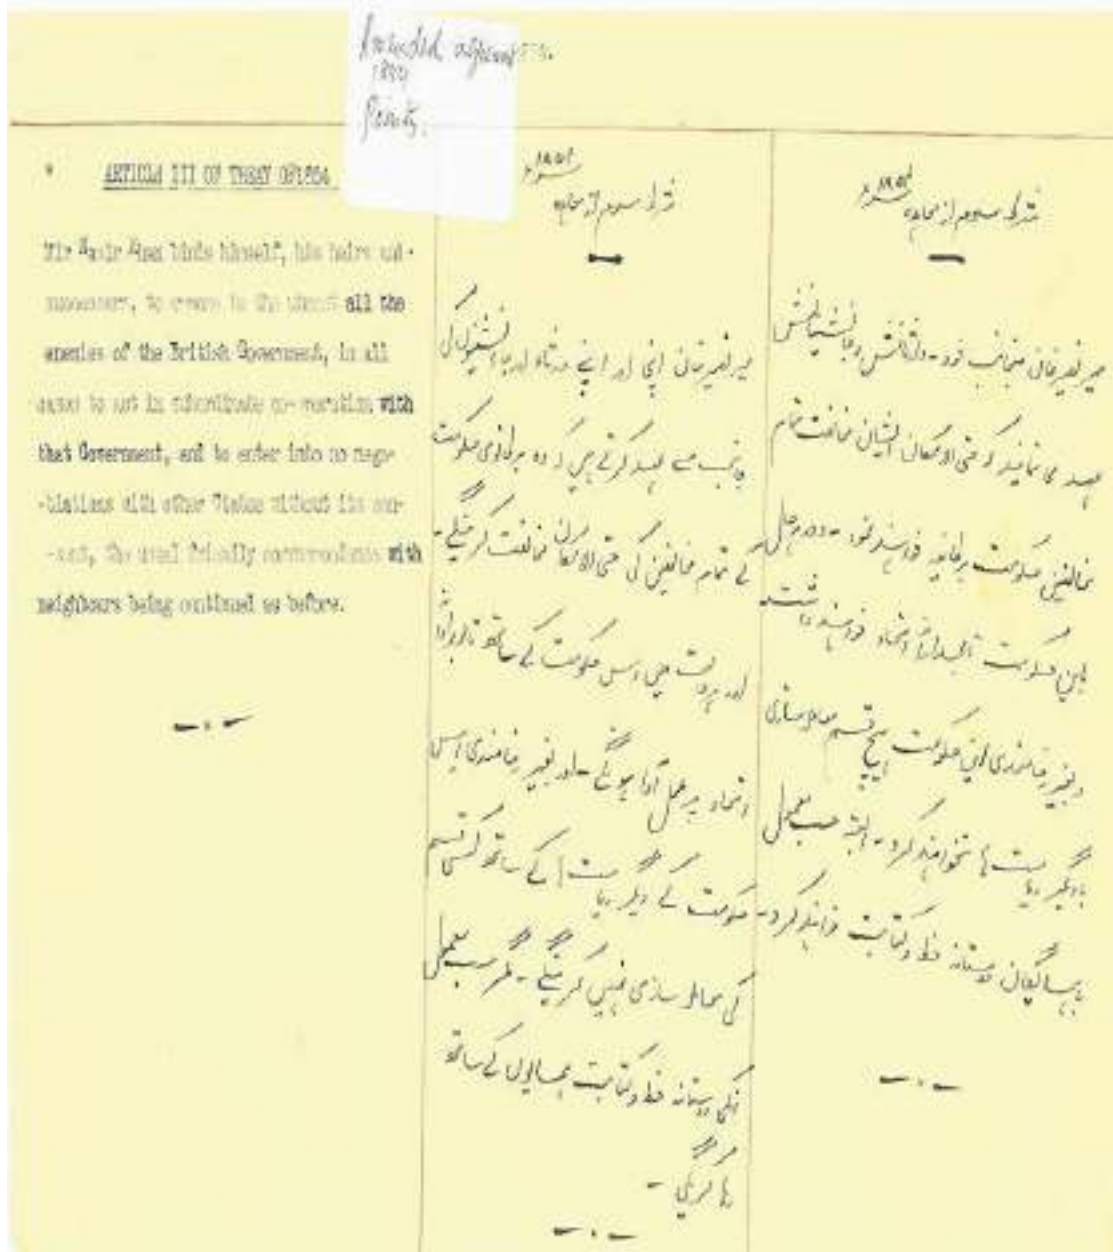 1854
Treaty.
ARTICLE III OF TREATY OF 1854
Mir Nasir Khan binds himself, his heirs and
successors, to oppose to the utmost all the
enemies of the British Government, in all
cases to act in subordinate co-operation with
that Government, and to enter into no nego-
-tiations with other States without its con-
-sent, the usual friendly correspondence with
neighbours being continued as before.
۱۸۵۴
شرط سوم از معاہدہ
میر نصیر خان اپنی اور اپنے ورثاء اور جانشینوں کی
جانب سے عہد کرتے ہیں کہ وہ برطانوی حکومت
کے تمام مخالفین کی حتی الامکان مخالفت کرینگے -
اور ہر وقت میں اس حکومت کے ساتھ
اتحاد پر عمل آرا ہونگے - اور بغیر رضامندی اس
حکومت کے دیگر ریاست ہا کے ساتھ کسی قسم
کی معاملہ سازی نہیں کرینگے - مگر حسب معمول
انکی دوستانہ خط و کتابت ہمسایوں کے ساتھ
رہا کریگی -
۱۸۵۴
شرط سوم از معاہدہ
میر نصیر خان منجانب خود - وارثانش و جانشینانش
عہد می نمایند کہ حتی الامکان ایشان مخالفت تمام
مخالفین حکومت برطانیہ خواہند نمود -
باین حکومت اتحاد خواہند داشت
و بغیر رضامندی این حکومت ہیچ قسم معاملہ سازی
بادیگر ریاست ہا نخواہند کرد - البتہ حسب معمول
با ہمسایگان دوستانہ خط و کتابت خواہند کرد -